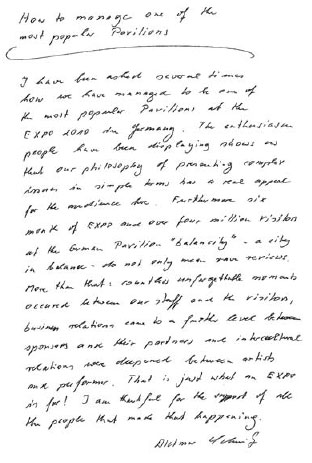 How to manage one of the
most popular Pavilions
I have been asked several times
how we have managed to be one of
the most popular Pavilions at the
EXPO 2010 Germany. The enthusiasm
people have been displaying shows us
that our philosophy of presenting complex
issues in simple terms has a real appeal
for the audience here. Furthermore six
month of EXPO and over four million visitors
at the German Pavilion "balancity" - a city
in balance - do not only mean rave reviews.
More than that: countless unforgettable moments
occured between our staff and the visitors,
business relations came to a further level between
sponsors and their partners and intercultural
relations were deepened between artists
and performer. That is just what an EXPO
is for! I am thankful for the support of all
the people that made that happening.
Dietmar